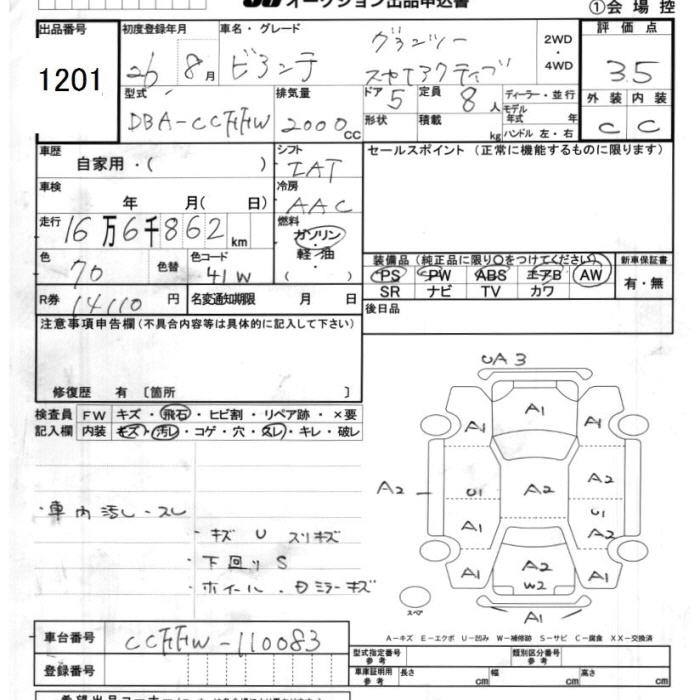 オークション出品申込書
①会場控
出品番号
1201
初度登録年月
26 8月
車名・グレード
ビアンテ
グランツー
スカイアクティブ
2WD
・
4WD
評価点
3.5
外装 内装
C C
型式
DBA-CCFFW
排気量
2000cc
ドア 5
定員 8人
形状
積載 kg
ディーラー・並行
モデル
年式 年
ハンドル 左・右
車歴
自家用・( )
シフト
IAT
セールスポイント (正常に機能するものに限ります)
車検
年 月( 日)
冷房
AAC
走行
16万6千862km
燃料
ガソリン
・
軽油
( )
色
70
色替
色コード
41W
装備品 (純正品に限り○をつけてください)
PS PW ABS エアB AW
SR ナビ TV カワ
新車保証書
有・無
R券 14110円
名変通知期限 月 日
後日品
注意事項申告欄 (不具合内容等は具体的に記入して下さい)
修復歴 有 〔箇所 〕
検査員
記入欄
FW キズ・飛石・ヒビ割・リペア跡・×要
内装 キズ・汚レ・コゲ・穴・スレ・キレ・破レ
・車内汚レ・スレ
・キズ U スリキズ
・下回り S
・ホイール・
ミラーキズ
UA3
A1
A1 A1
A2 U1 A2 A2
U1
A1 A2
A1 A2 A1
W2
A1
スペア
A-キズ E-エクボ U-凹み W-補修跡 S-サビ C-腐食 XX-交換済
車台番号
CCFFW-110083
登録番号
型式指定番号
参考
類別区分番号
参考
車庫証明用
参考
長さ cm
幅 cm
高さ cm
希望出品コーナー